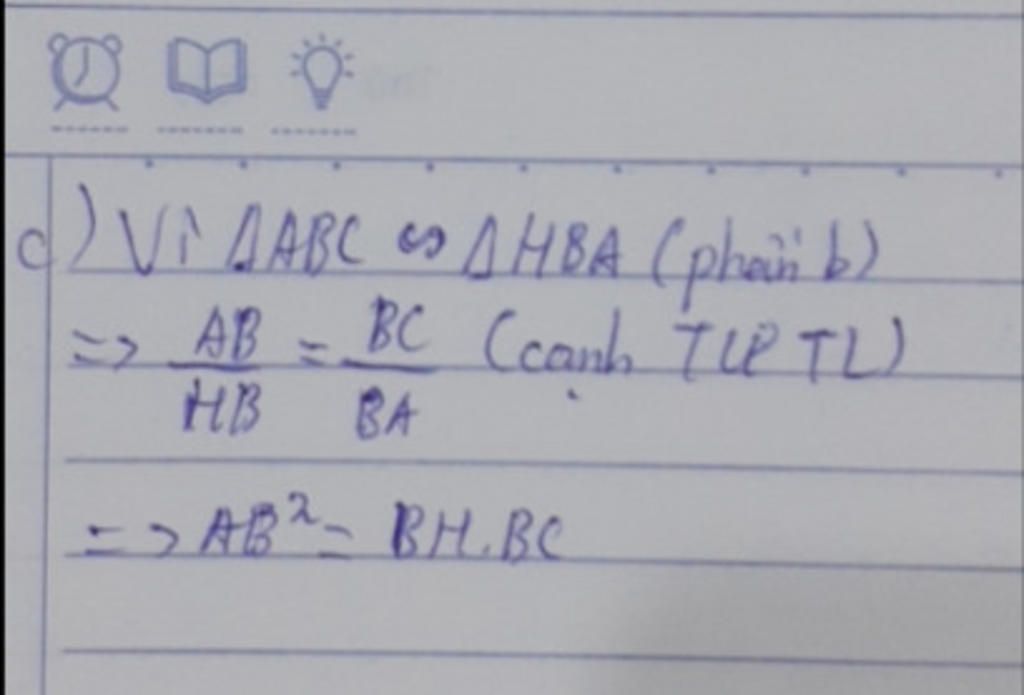 c) Vì ΔABC ∽ ΔHBA (phần b)
=> AB/HB = BC/BA (cạnh TLP TL)
=> AB² = BH.BC